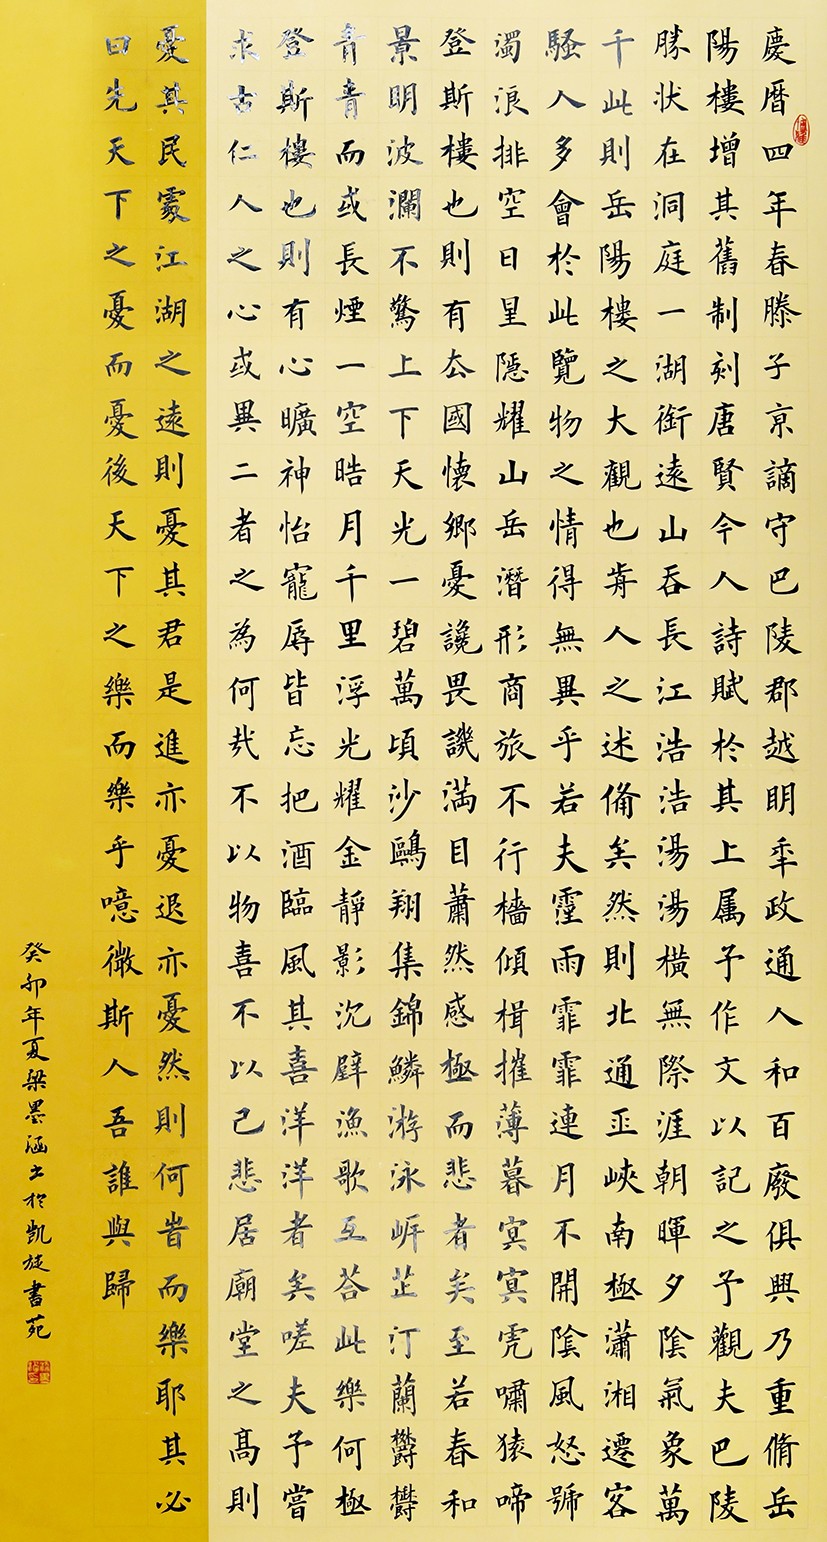 慶曆四年春滕子京謫守巴陵郡越明年政通人和百廢俱興乃重脩岳
陽樓增其舊制刻唐賢今人詩賦於其上属予作文以記之予觀夫巴陵
勝狀在洞庭一湖銜遠山吞長江浩浩湯湯橫無際涯朝暉夕陰氣象萬
千此則岳陽樓之大觀也前人之述備矣然則北通巫峽南極瀟湘遷客
騷人多會於此覽物之情得無異乎若夫霪雨霏霏連月不開陰風怒號
濁浪排空日星隱耀山岳潛形商旅不行檣傾楫摧薄暮冥冥虎嘯猿啼
登斯樓也則有去國懷鄉憂讒畏譏滿目蕭然感極而悲者矣至若春和
景明波瀾不驚上下天光一碧萬頃沙鷗翔集錦鱗游泳岸芷汀蘭鬱鬱
青青而或長煙一空皓月千里浮光耀金靜影沉璧漁歌互答此樂何極
登斯樓也則有心曠神怡寵辱皆忘把酒臨風其喜洋洋者矣嗟夫予嘗
求古仁人之心或異二者之為何哉不以物喜不以己悲居廟堂之高則
憂其民處江湖之遠則憂其君是進亦憂退亦憂然則何時而樂耶其必
曰先天下之憂而憂後天下之樂而樂乎噫微斯人吾誰與歸
癸卯年夏梁墨涵書於凱旋書苑